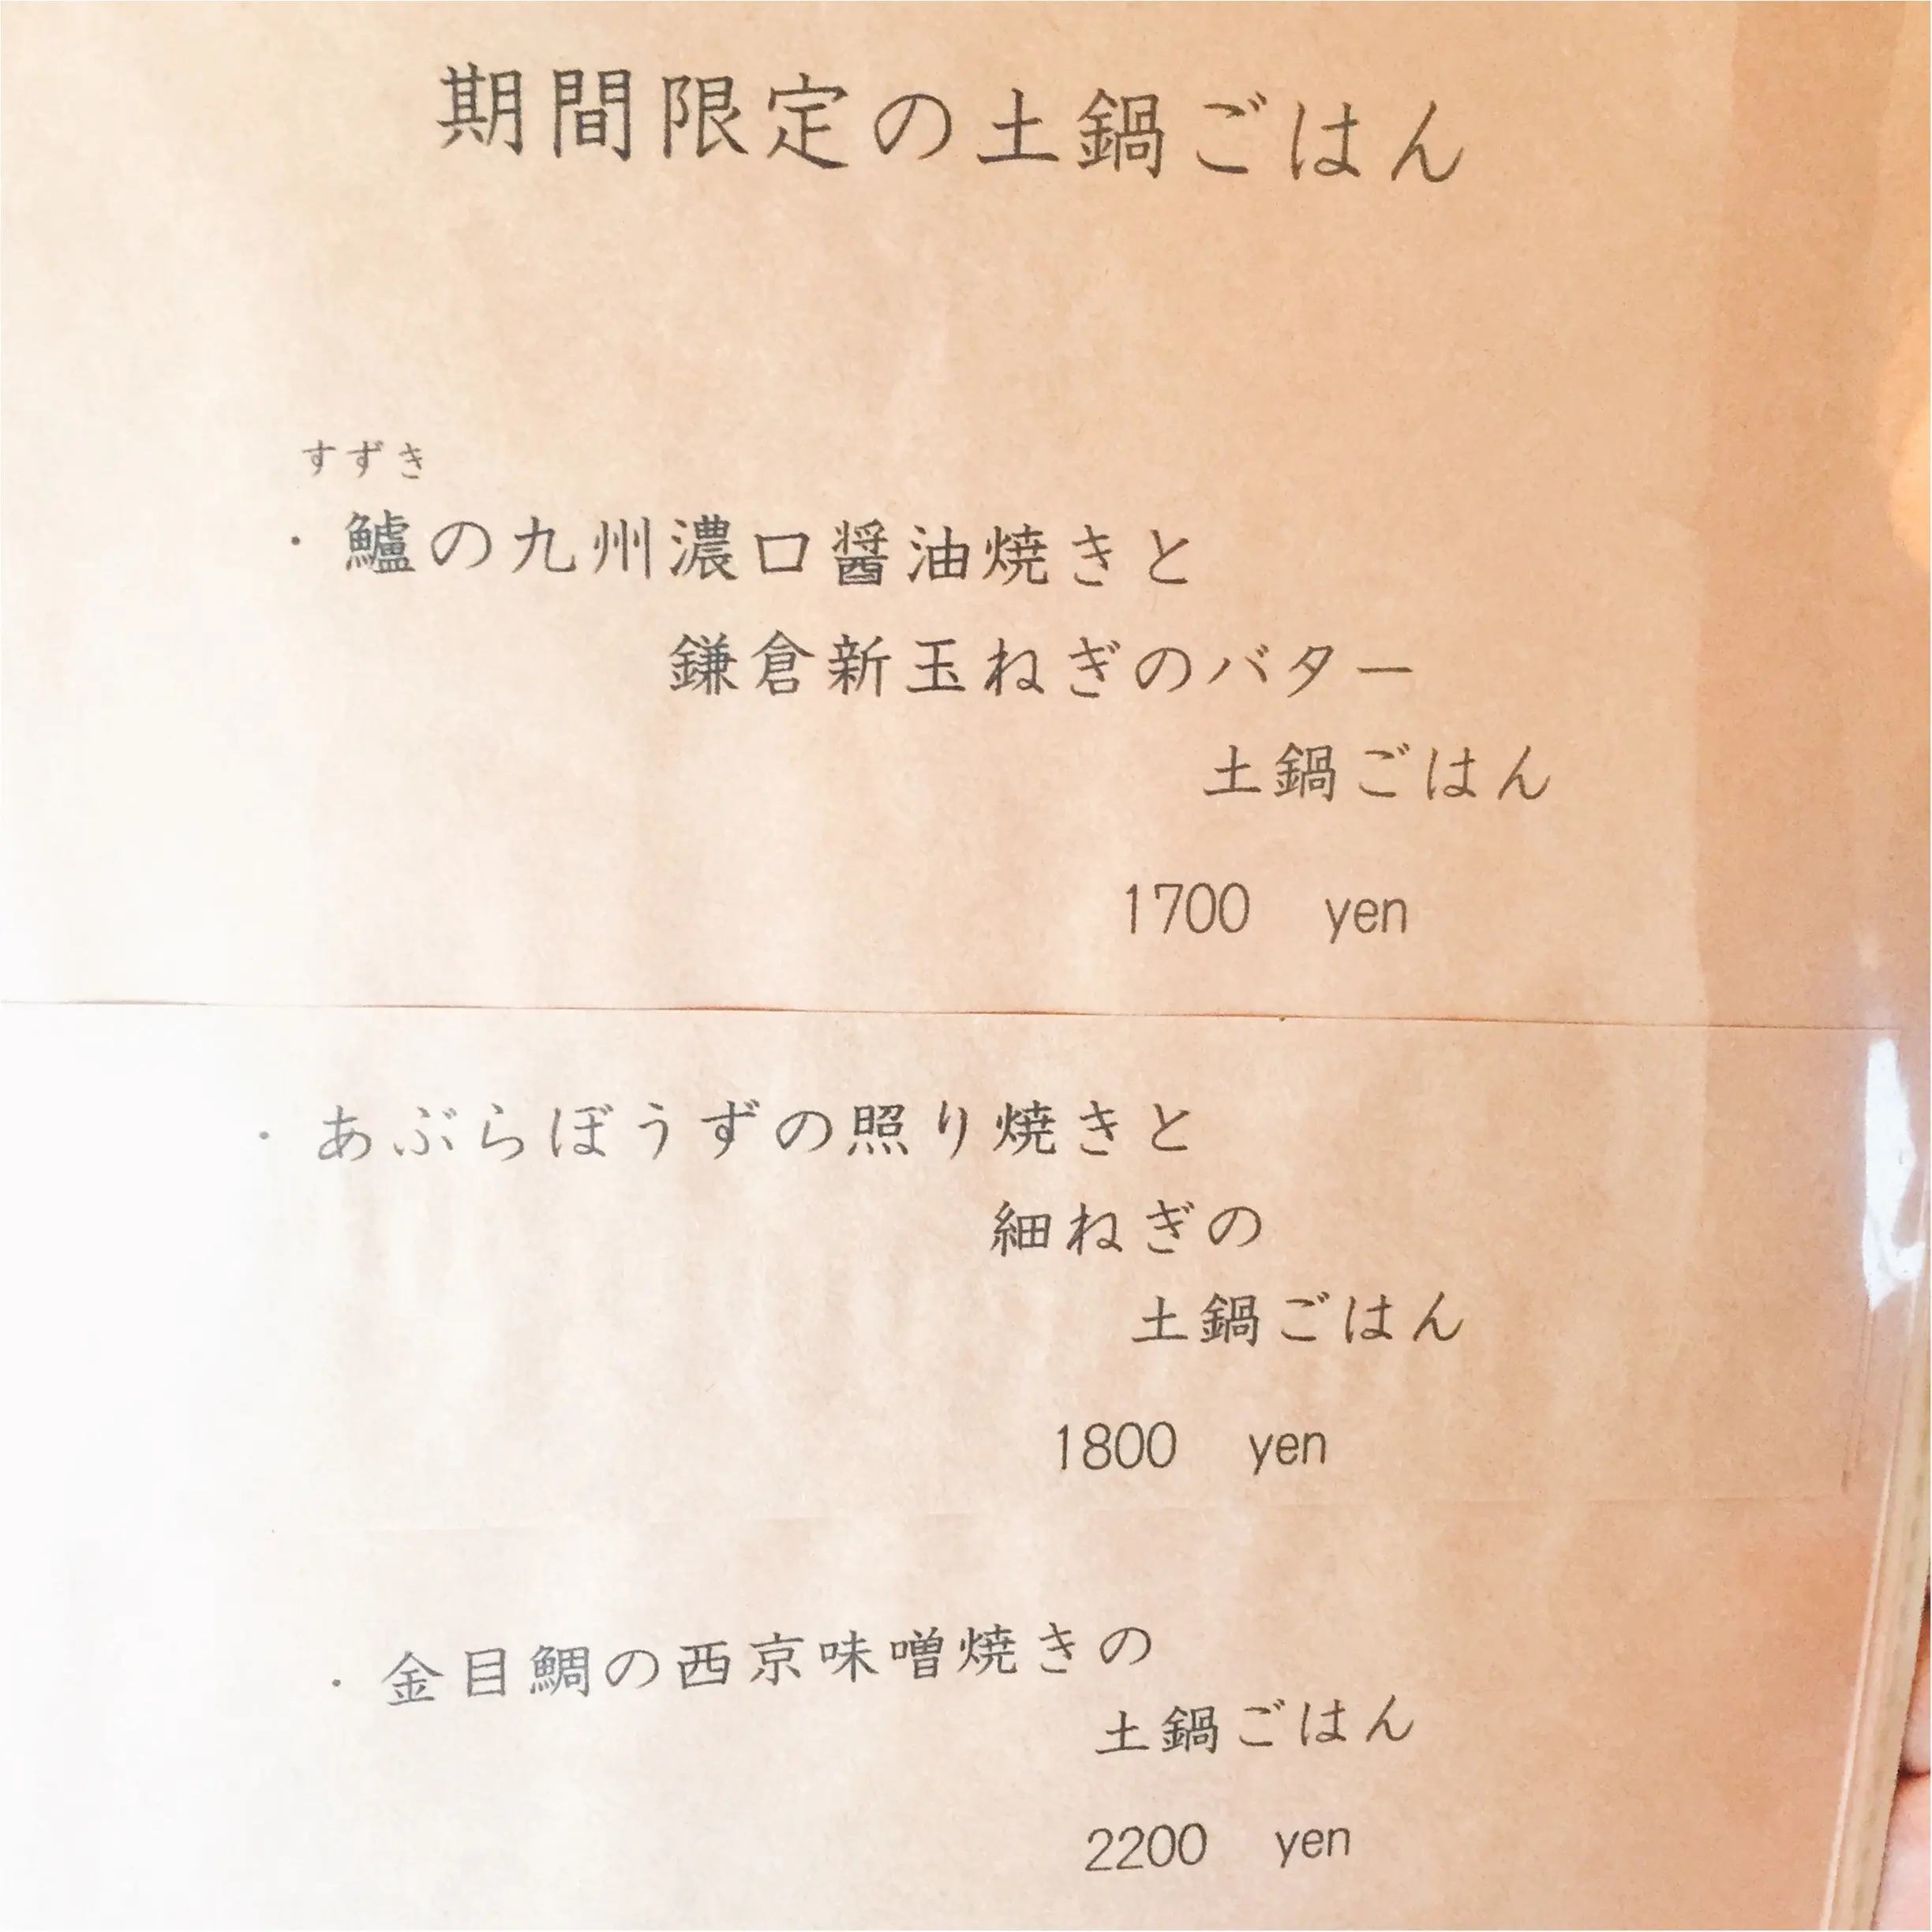 期間限定の土鍋ごはん
すずき
・鱸の九州濃口醤油焼きと
鎌倉新玉ねぎのバター
土鍋ごはん
1700 yen
・あぶらぼうずの照り焼きと
細ねぎの
土鍋ごはん
1800 yen
・金目鯛の西京味噌焼きの
土鍋ごはん
2200 yen